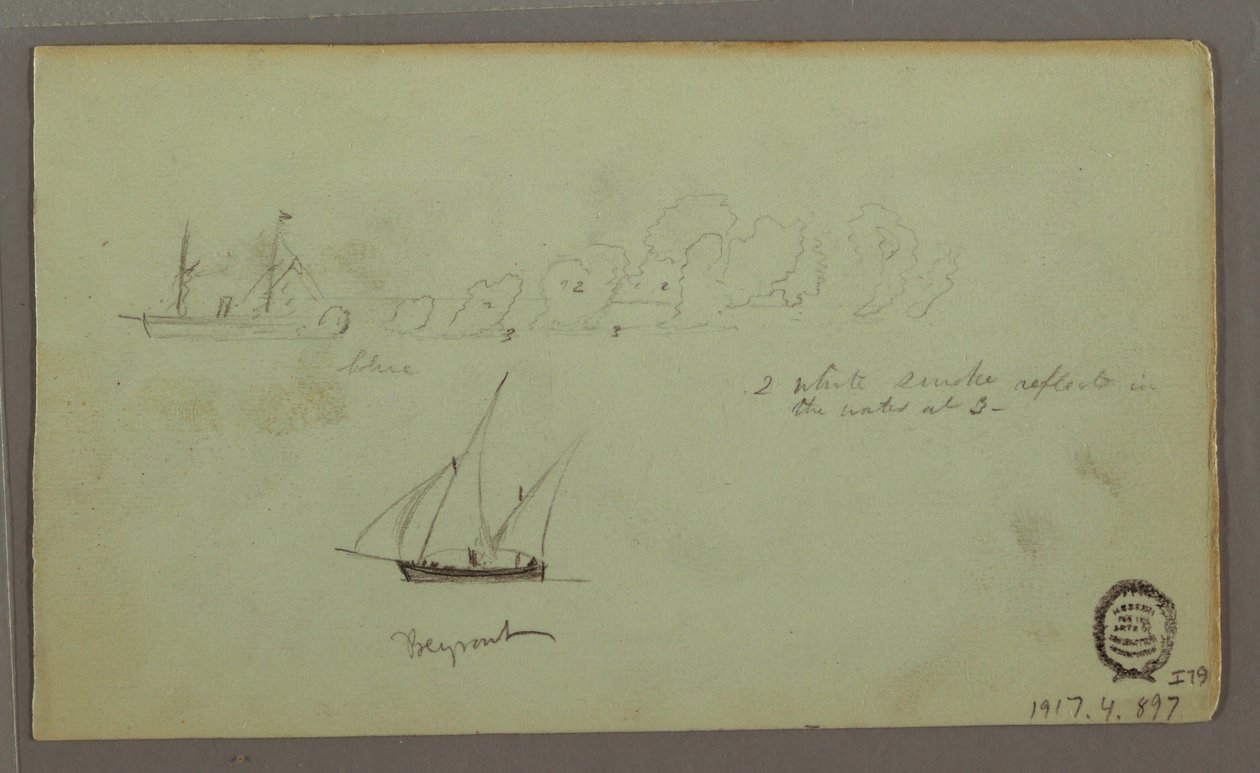 2 2
3 3
blue
2 White smoke reflects in
the water at 3-
Beyrout
MUSEUM
FOR THE
ARTS OF
I79
1917.4.897